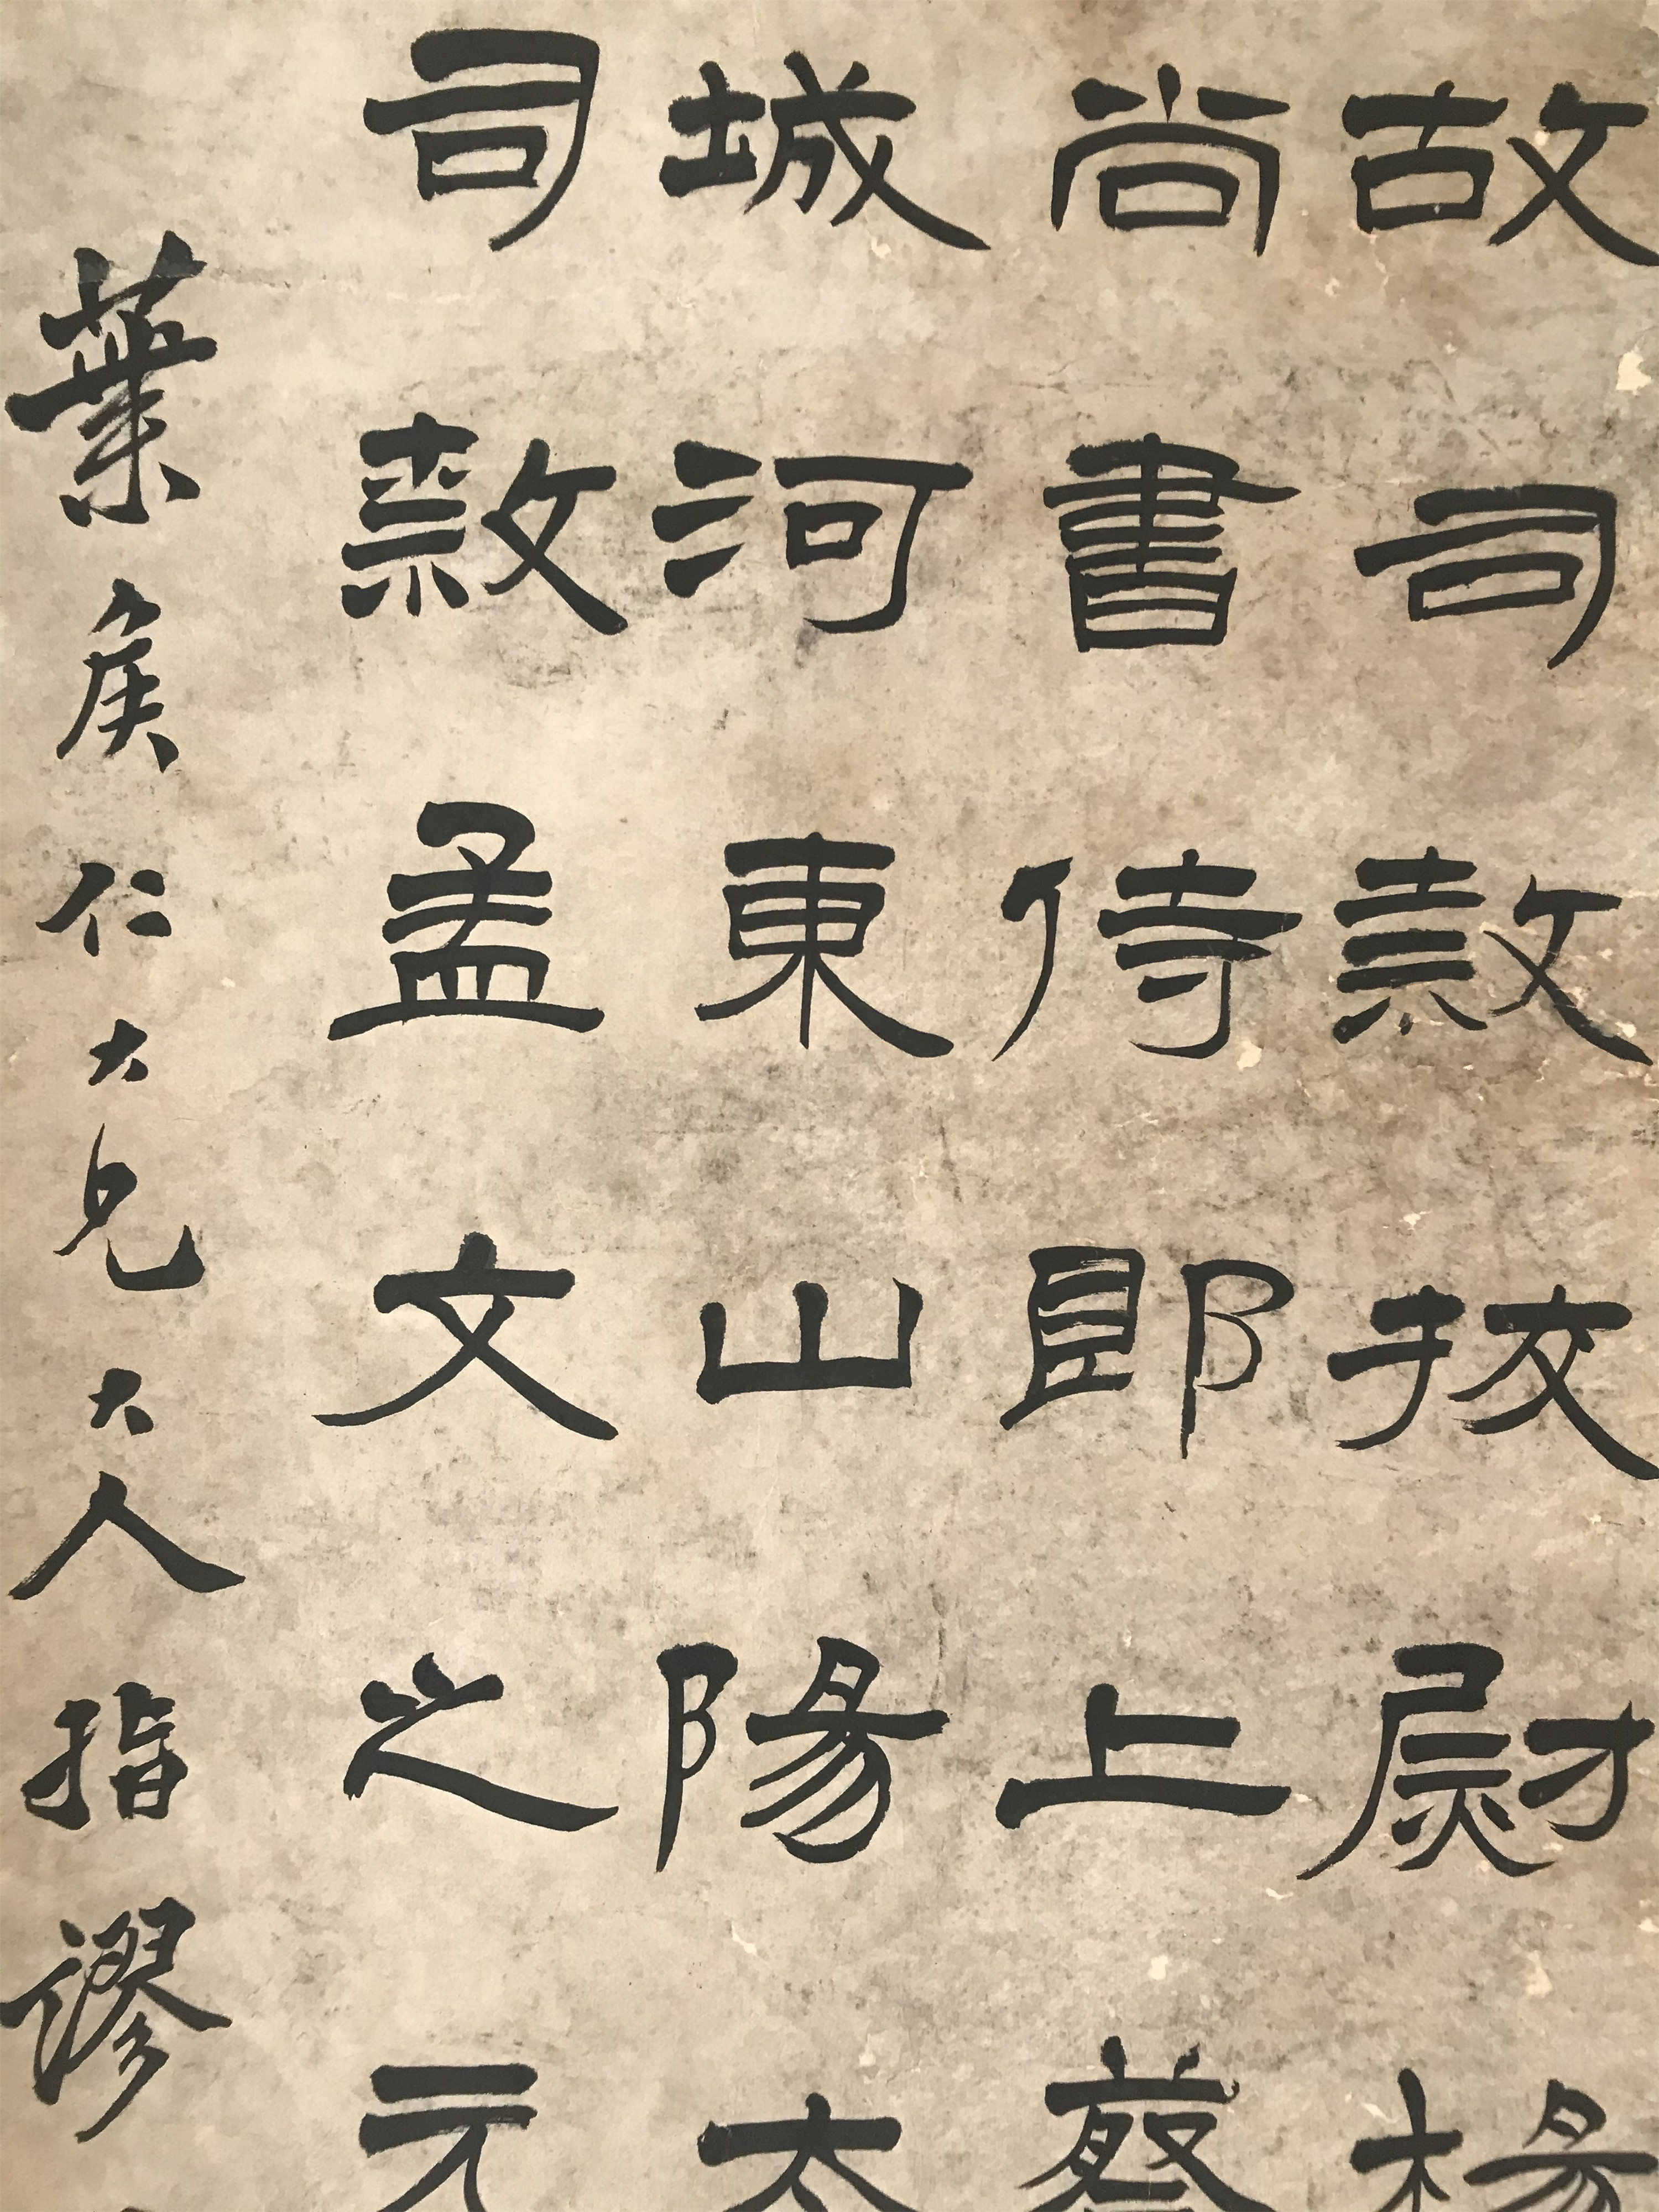 故司隸挍尉楊
尚書侍郎上蔡
城河東山陽太
司隸孟文之元
葉侯仁大兄大人指謬